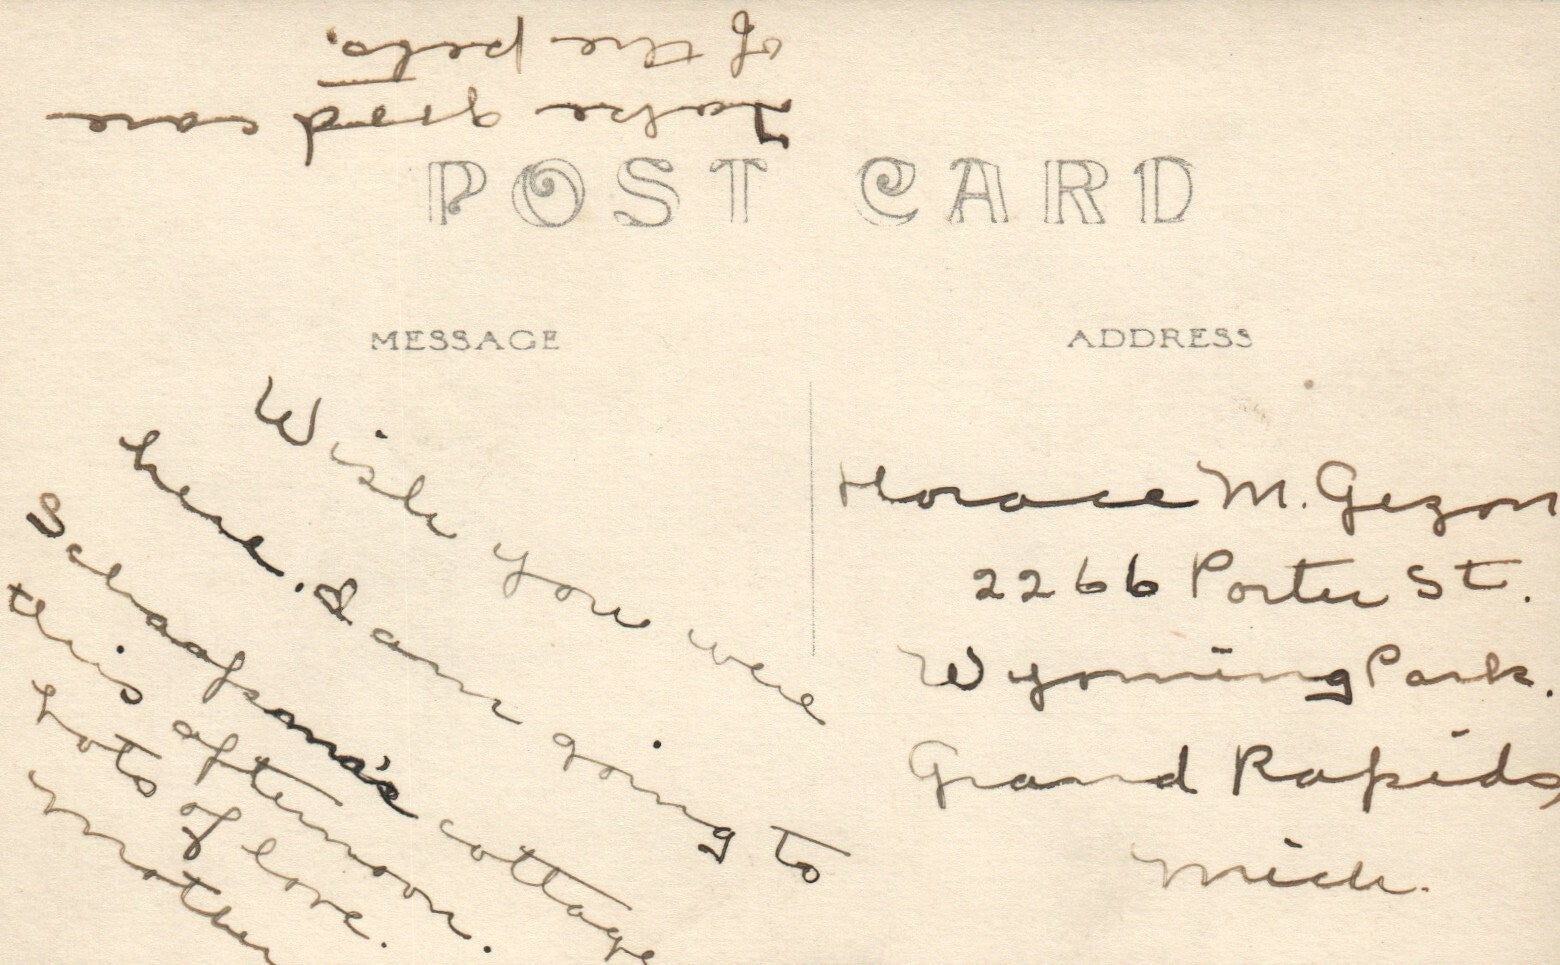 Take good care
of the pets.
POST CARD
MESSAGE
ADDRESS
Wish you were
here. I am going to
Schaafsma's cottage
this afternoon.
Lots of love.
Mother
Horace M. Gezon
2266 Porter St.
Wyoming Park.
Grand Rapids,
Mich.